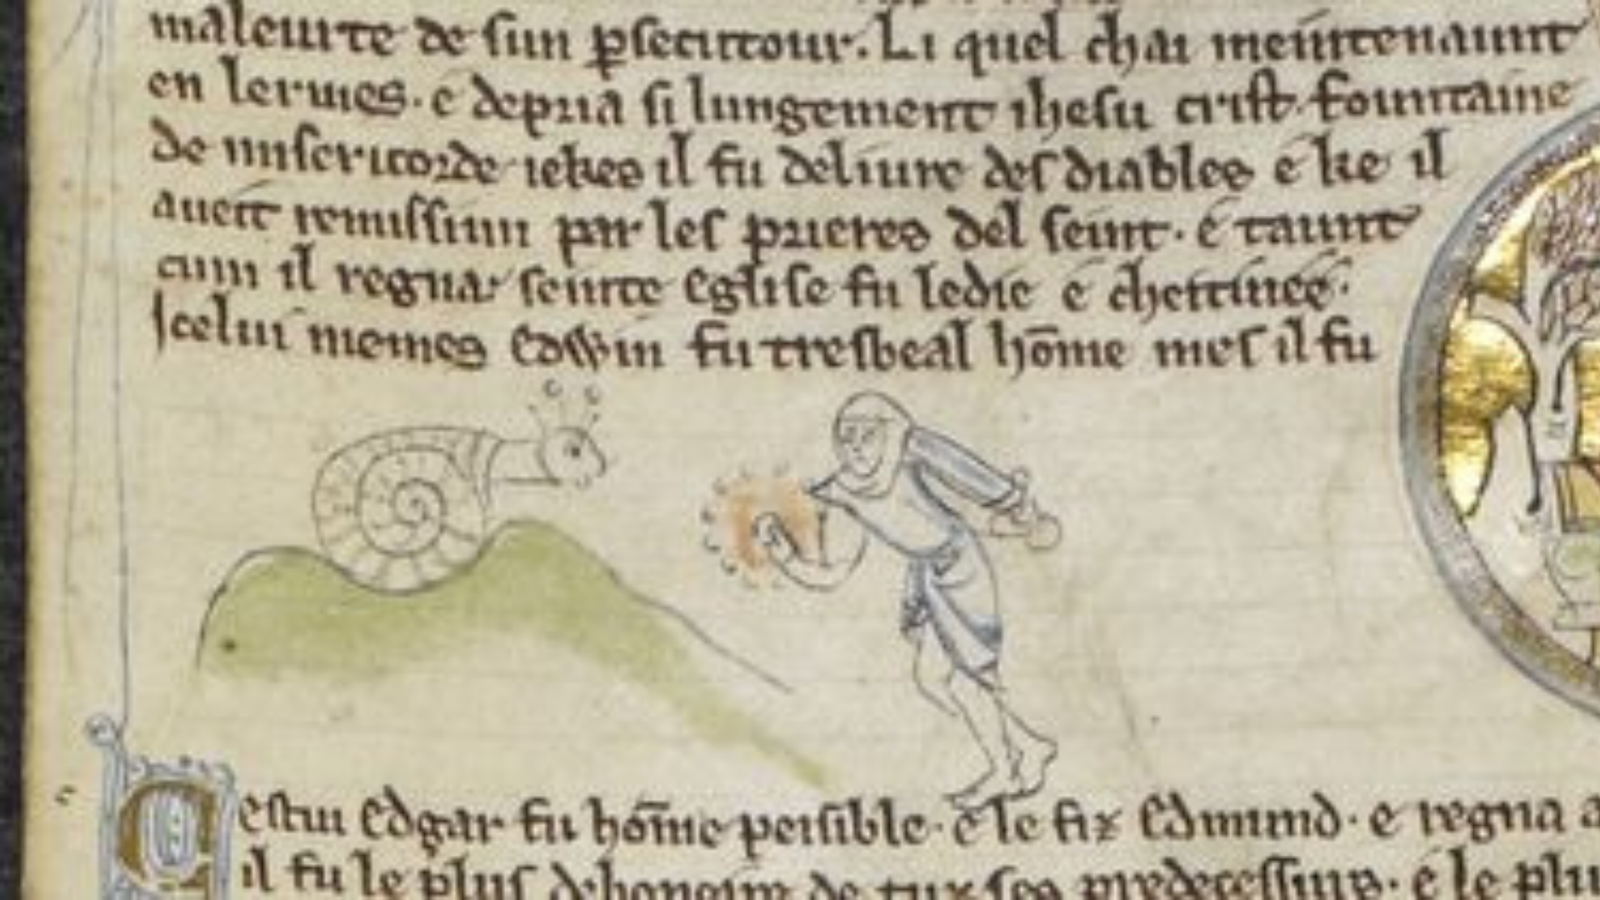 maleurte de sun ꝑsecutour. Li quel chai meintenaunt
en lermes. e depria si lungement ihesu crist. fountaine
de misericorde iekes il fu deliure des diables e ke il
aueit remissiun par les prieres del seint. e taunt
cum il regna seinte eglise fu ledie e chettiuee.
Icelui memes Edwin fu tresbeal hōme mes il fu
Cestui Edgar fu hōme peisible. e le fiz Edmund. e regna a
il fu le plus debonaire de tuz ses predecessurs. e le plu